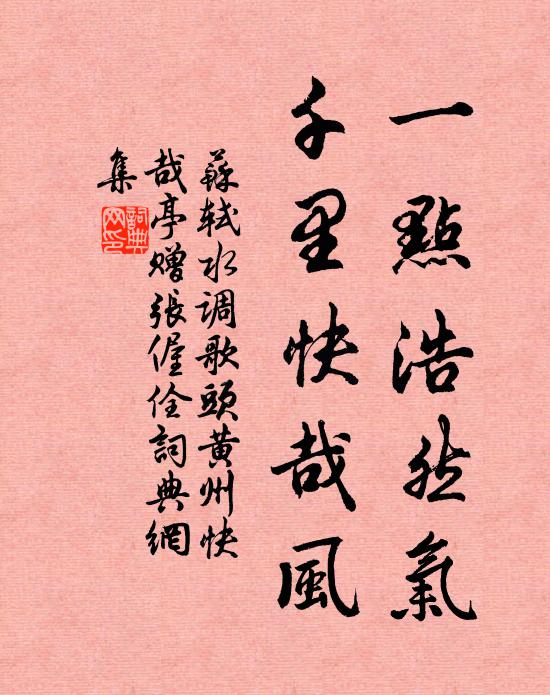 一點浩然氣
千里快哉風
蘇軾水调歌頭黄州快
哉亭赠張偓佺詞典網
集
詞典網印